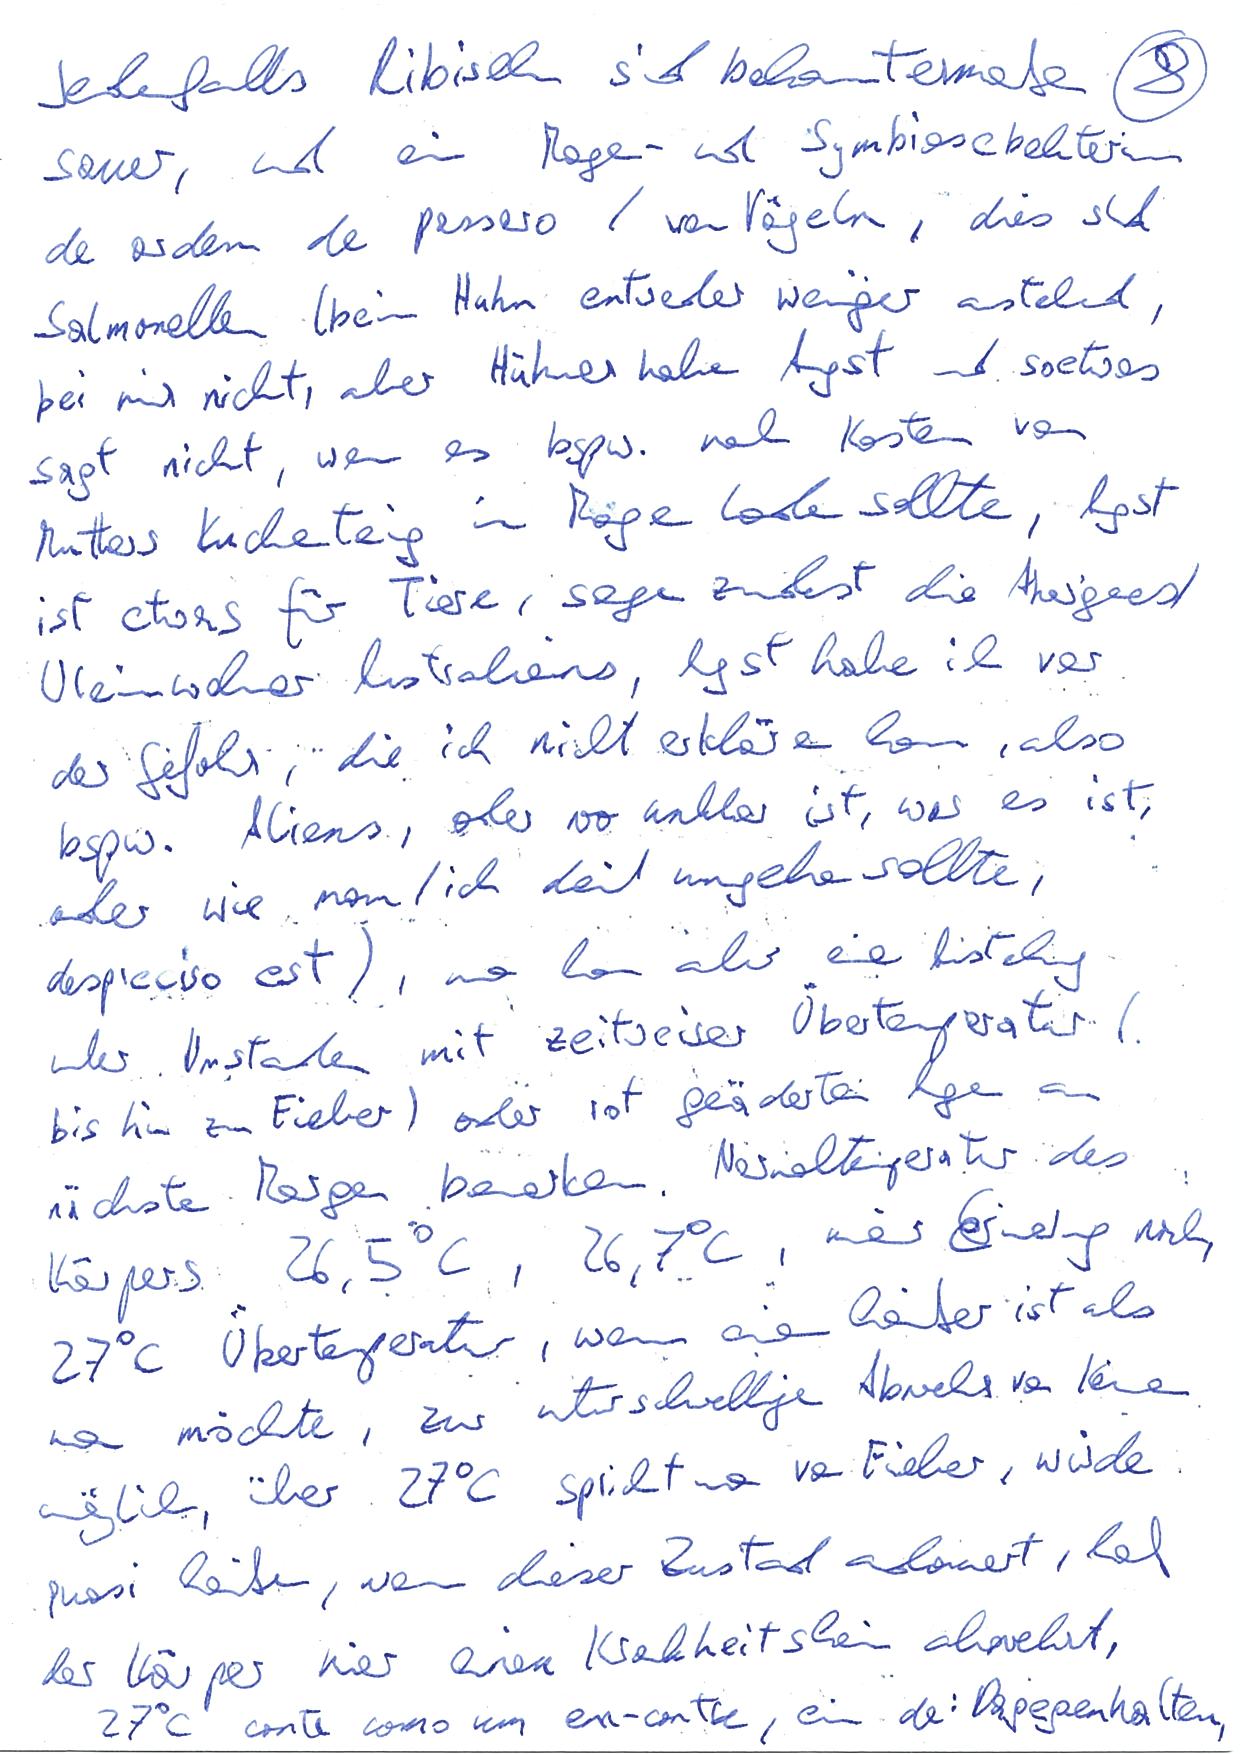 Jedenfalls Ribiseln sind bekanntermaßen 8
sauer, und ein Magen- und Symbiosebakterium
de ordem de passaro / von Vögeln, dies sind
Salmonellen (beim Huhn entweder weniger ansteckend,
bei mir nicht, aber Hühner habe Angst und soetwas
sagt nicht, wenn es bspw. nach Kosten von
Mutters Kuchenteig in Magen landen sollte, Angst
ist etwas für Tiere, sagen zuerst die
Ureinwohner Australiens, Angst habe ich vor
der Gefahr, die ich nicht erklären kann, also
bspw. Aliens, oder wo unklar ist, was es ist,
oder wie man/ich damit umgehen sollte,
est), man kann aber eine Ansteckung
unter Umständen mit zeitweiser Übertemperatur (
bis hin zu Fieber) oder rot geäderten Augen am
nächsten Morgen bemerken. Normaltemperatur des
Körpers 26,5°C, 26,7°C, meiner Erinnerung nach,
27°C Übertemperatur, wenn einem heißer ist als
man möchte, zur unterschwelligen Abwehr von Keimen
möglich, über 27°C spricht man von Fieber, würde
quasi heißen, wenn dieser Zustand andauert, hat
der Körper hier einen Krankheitskeim abgewehrt,
27°C conta como um en-contra, ein de: Dagegenhalten,